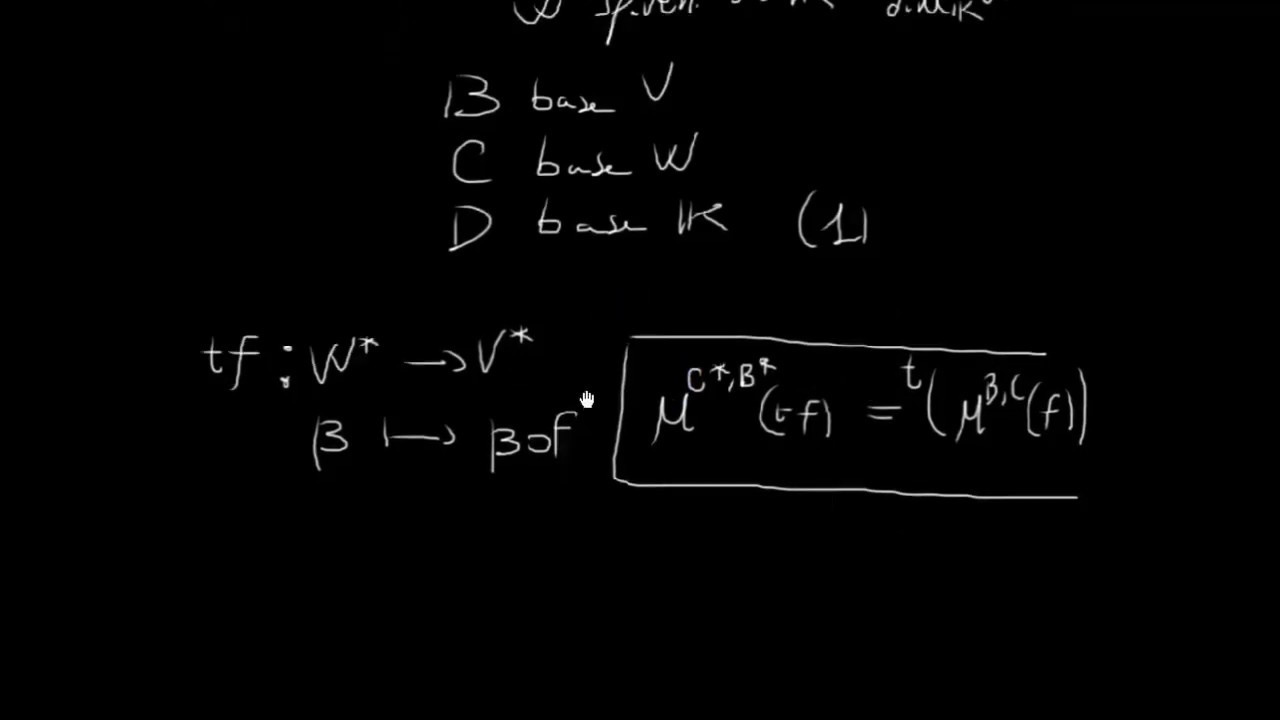 W sp. vett.
B base V
C base W
D base 𝕂 (1)
tf : W* → V*
β ↦ β∘f
μ^{C*,B*}(tf) = ^t(μ^{B,C}(f))